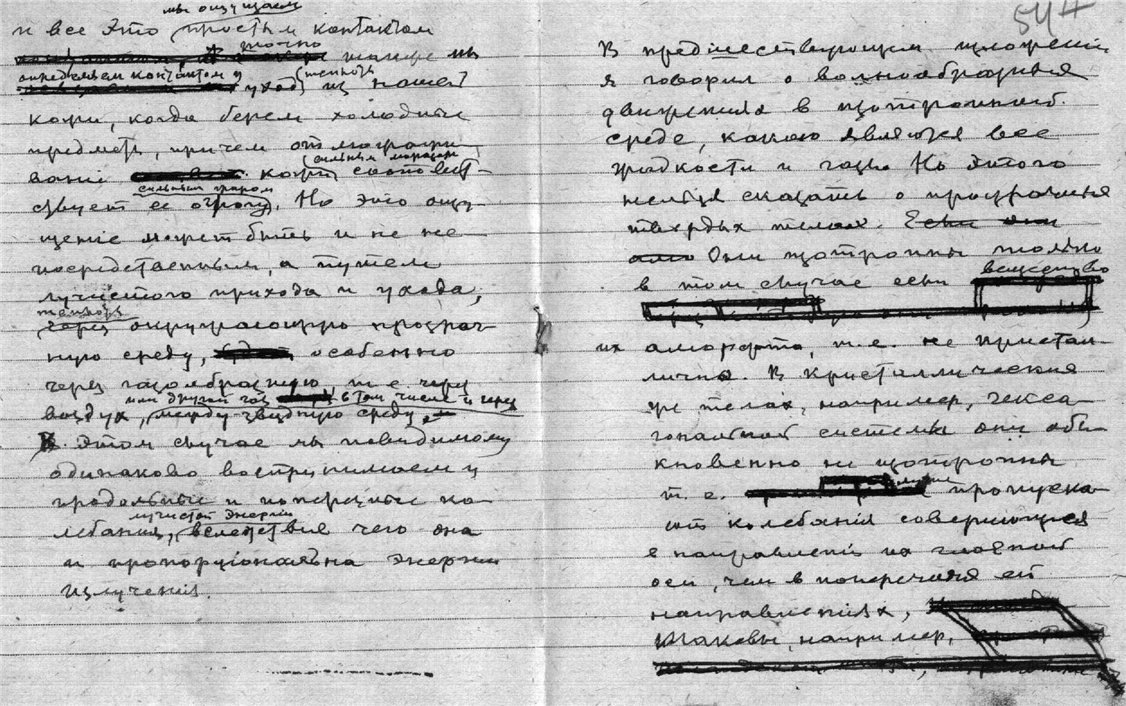 мы ощущаем
и все это простым контактом
точно
также мы
определяем контактом и
уход из нашей
кожи, когда берем холодные
предметы, причем отмораживание
сильным морозом
кожи соответ-
сильным жаром
ствует ее ожогу. Но это ощу-
щение может быть и не не
посредственным, а путем
лучистого прихода и ухода,
через окружающую прозрач-
ную среду, особенно
через газообразную, т.е. через
или другой газ в том числе и через
воздух, междузвездную среду.
В этом случае мы повидимому
одинаково воспринимаем и
продольные и поперечные ко-
лучистой энергии
лебания, вследствие чего она
и пропорциональна энергии
излучения.
544
В предшествующем изложении
я говорил о волнообразных
движениях в изотропной
среде, какою являются все
жидкости и газы. Но этого
нельзя сказать о прозрачных
твердых телах. Если они
Они изотропны только
вещество
в том случае если
их аморфно, т.е. не кристал-
лично. В кристаллических
же телах, например, гекса-
гональной системы они обы-
кновенно не изотропны
т.е. пропуска-
ют колебания совершающиеся
в направлении их главной
оси, чем в поперечных ей
направлениях,
Таковы, например,